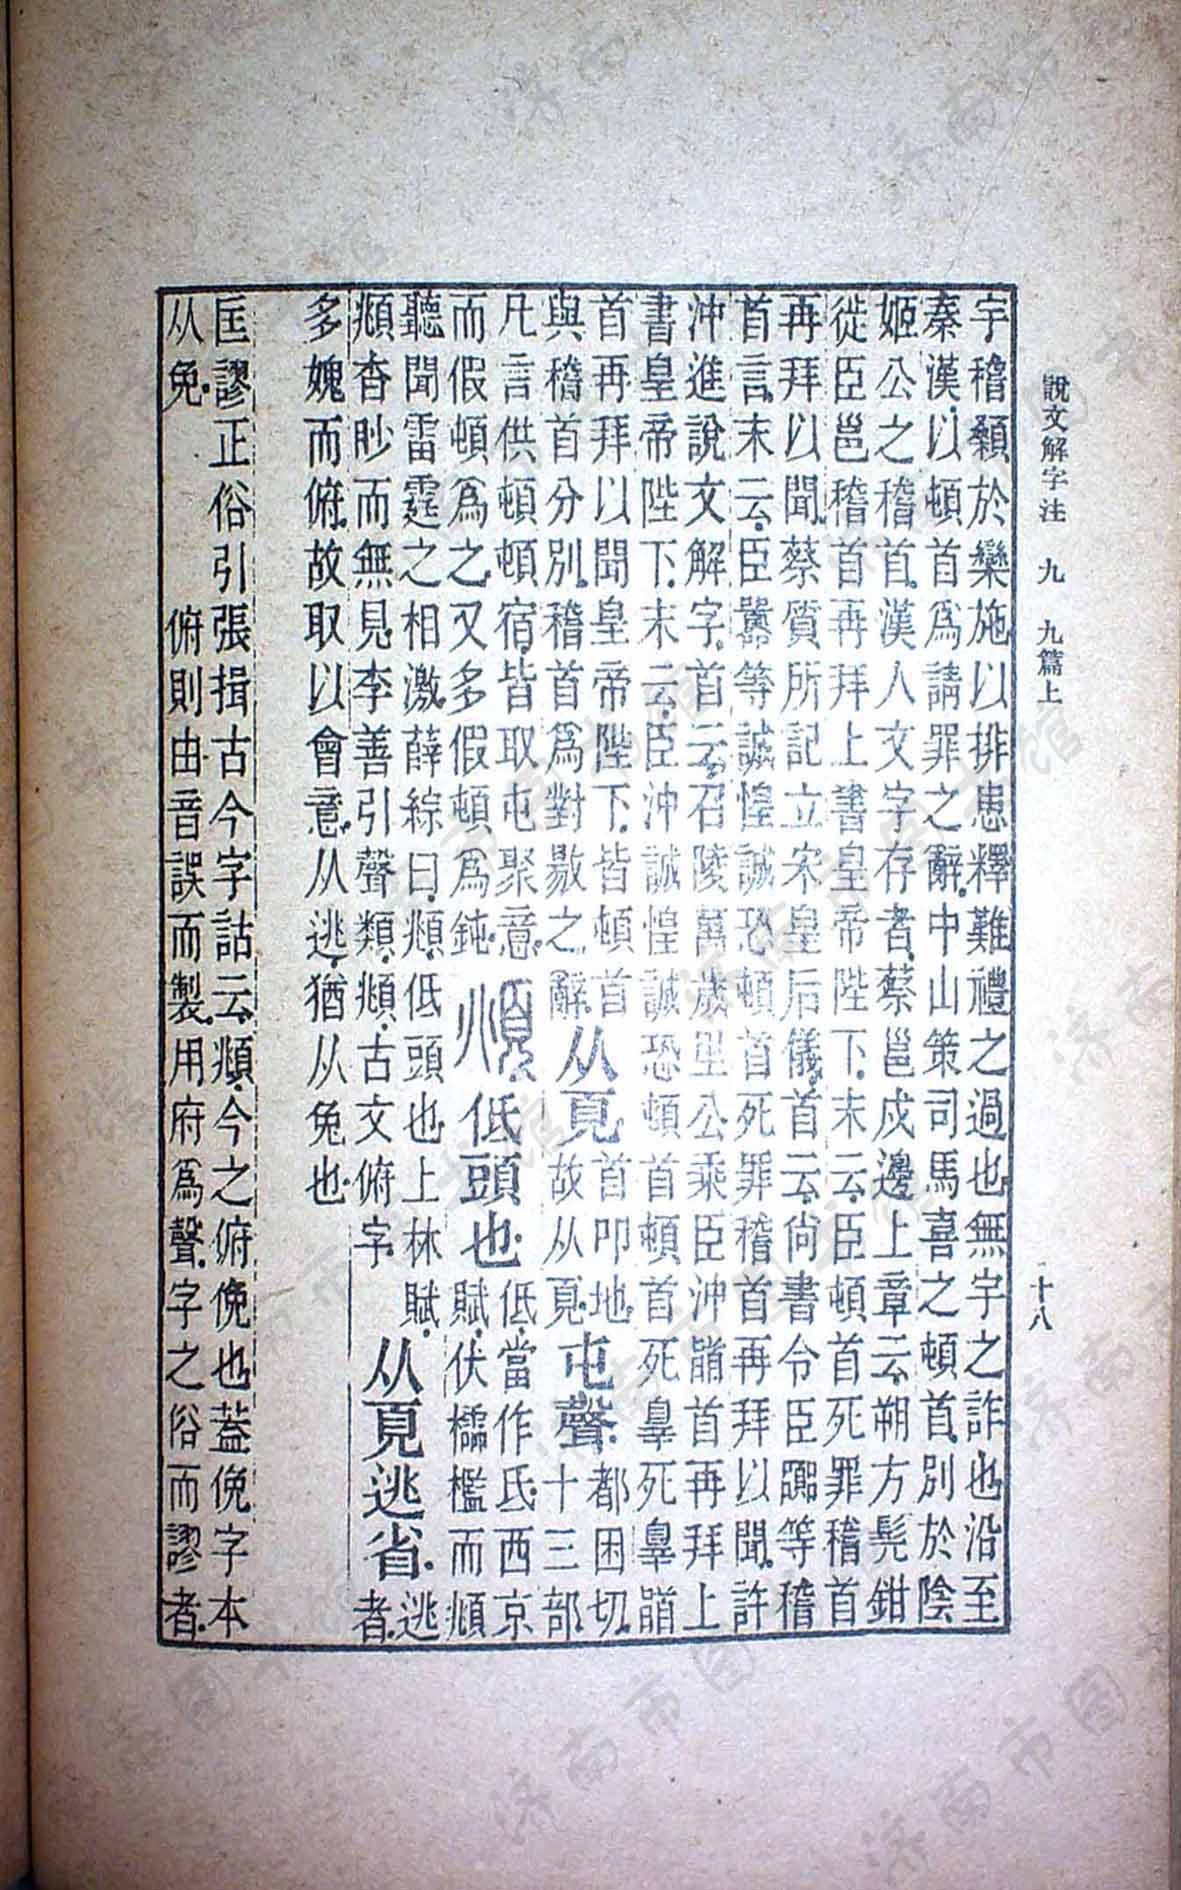 說文解字注 九 九篇上 十八
宇稽顙於欒施以排患釋難禮之過也無宇之詐也沿至
秦漢以頓首爲請罪之辭中山策司馬喜之頓首別於陰
姬公之稽首漢人文字存者蔡邕戍邊上章云朔方髡鉗
徙臣邕稽首再拜上書皇帝陛下末云臣頓首死罪稽首
再拜以聞蔡質所記立宋皇后儀首云尙書令臣嚻等稽
首言末云臣嚻等誠惶誠恐頓首死罪稽首再拜以聞許
沖進說文解字首云召陵萬歲里公乘臣沖䭫首再拜上
書皇帝陛下末云臣沖誠惶誠恐頓首頓首死辠死辠䭫
首再拜以聞皇帝陛下皆頓首
與稽首分別稽首爲對敭之辭
从頁
首叩地
故从頁
屯聲
都困切
十三部
凡言供頓頓宿皆取屯聚意
而假頓爲之又多假頓爲鈍
頫低頭也
低當作氐西京
賦伏櫺檻而頫
聽聞雷霆之相激薛綜曰頫低頭也上林賦
頫杳眇而無見李善引聲類頫古文俯字
从頁逃省
逃
者
多媿而俯故取以會意从逃猶从兔也
匡謬正俗引張揖古今字詁云頫今之俯俛也葢俛字本
从免 俯則由音誤而製用府爲聲字之俗而謬者